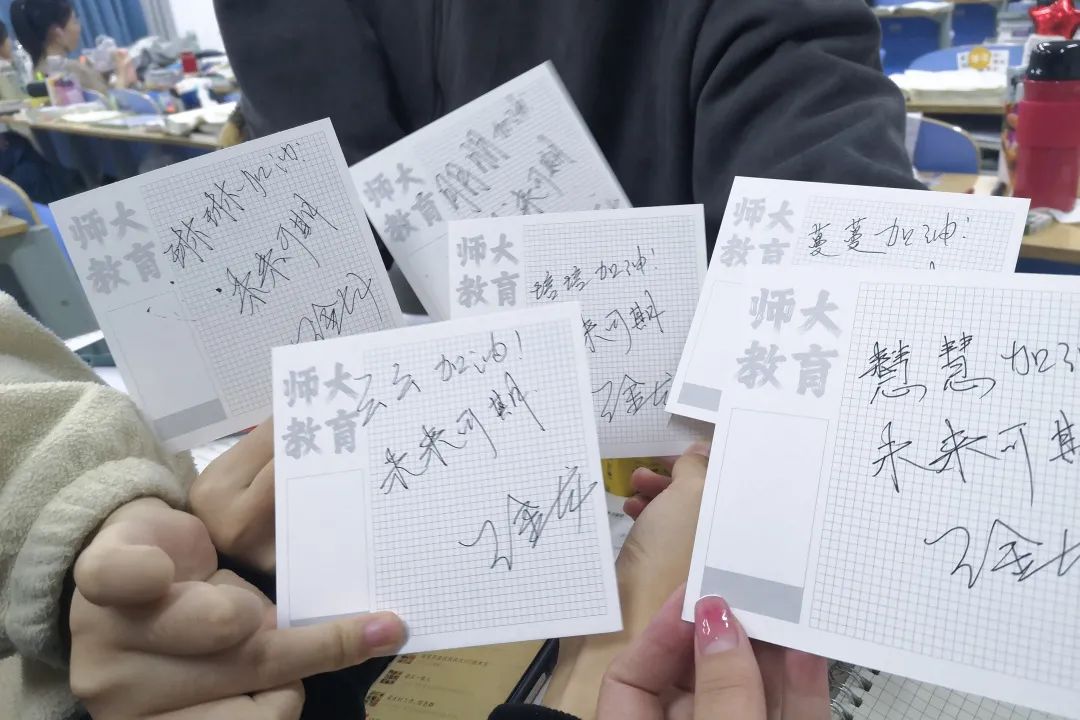 师大
教育
琳琳加油!
未来可期
师大
教育
加油
未来可期
师大
教育
加油!
来可期
师大
教育
蔓蔓加油!
师大
教育
云云加油!
未来可期
师大
教育
慧慧加油
未来可期